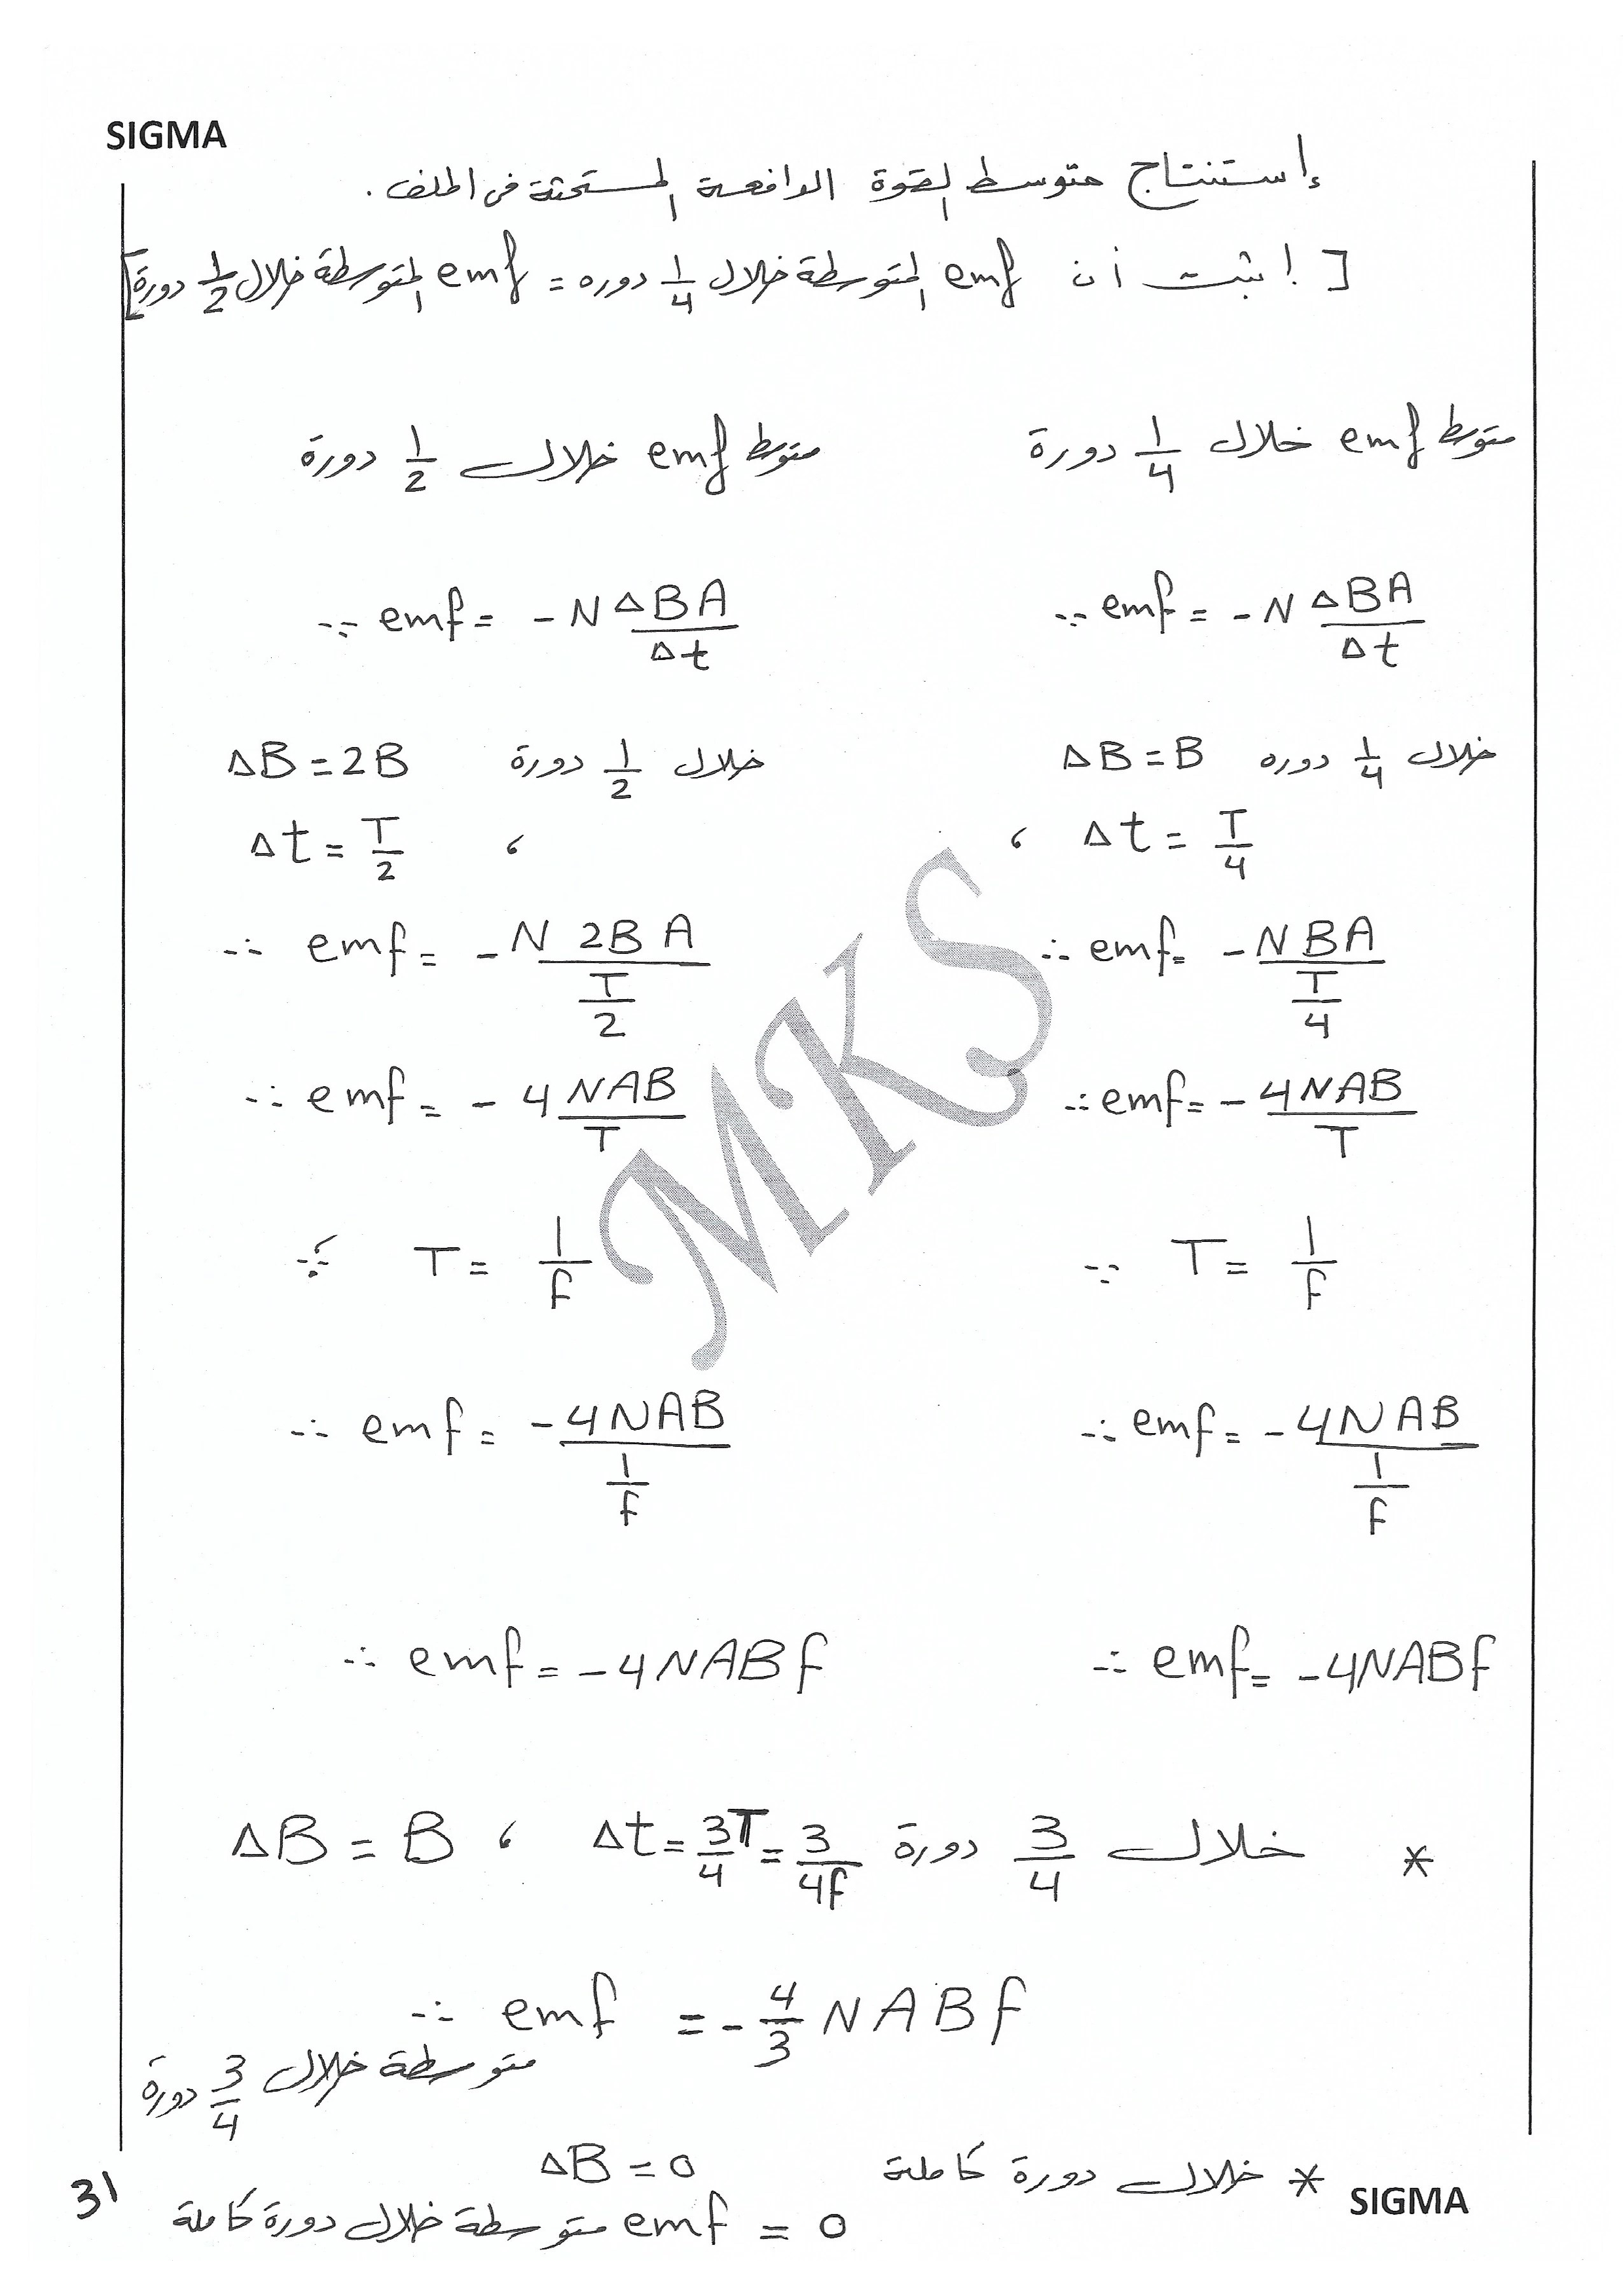 SIGMA
إستنتاج متوسط القوة الدافعة المستحثة فى الملف .
[ اثبت أن emf المتوسطة خلال 1/4 دوره = emf المتوسطة خلال 1/2 دورة ]
متوسط emf خلال 1/4 دورة
∵ emf = - N ΔBA/Δt
خلال 1/4 دوره ΔB = B
، Δt = T/4
∴ emf = -NBA/(T/4)
∴ emf = -4NAB/T
∵ T = 1/f
∴ emf = -4NAB/(1/f)
∴ emf = -4NABf
متوسط emf خلال 1/2 دورة
∵ emf = - N ΔBA/Δt
خلال 1/2 دورة ΔB = 2B
، Δt = T/2
∴ emf = -N 2B A/(T/2)
∴ emf = - 4 NAB/T
∵ T = 1/f
∴ emf = -4NAB/(1/f)
∴ emf = -4NABf
* خلال 3/4 دورة Δt = 3T/4 = 3/4f ، ΔB = B
∴ emf = - 4/3 NABf
متوسطة خلال 3/4 دورة
* خلال دورة كاملة ΔB = 0
emf متوسطة خلال دورة كاملة = 0
MKS
31
SIGMA